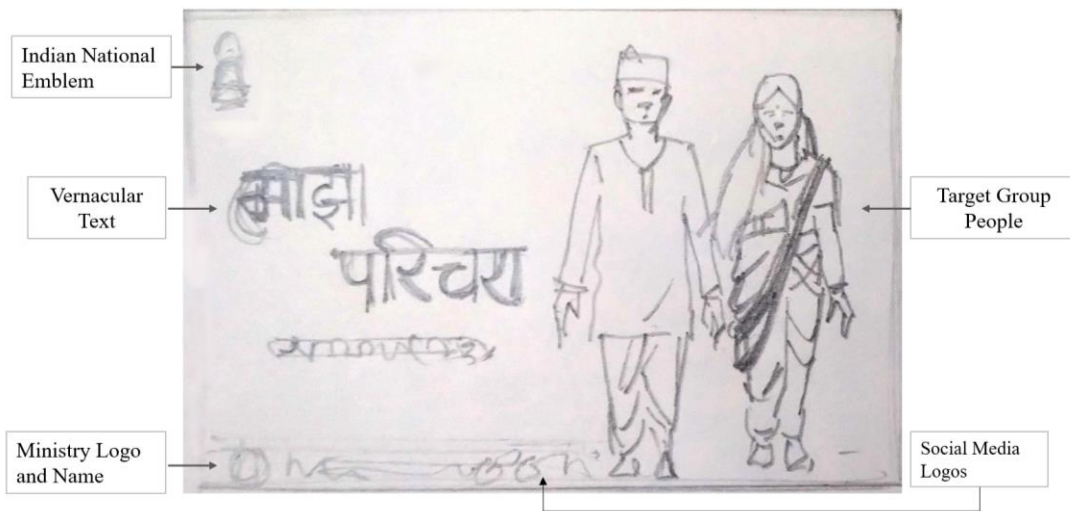 Indian National
Emblem
Vernacular
Text
माझा
परिचय
Target Group
People
Ministry Logo
and Name
Social Media
Logos